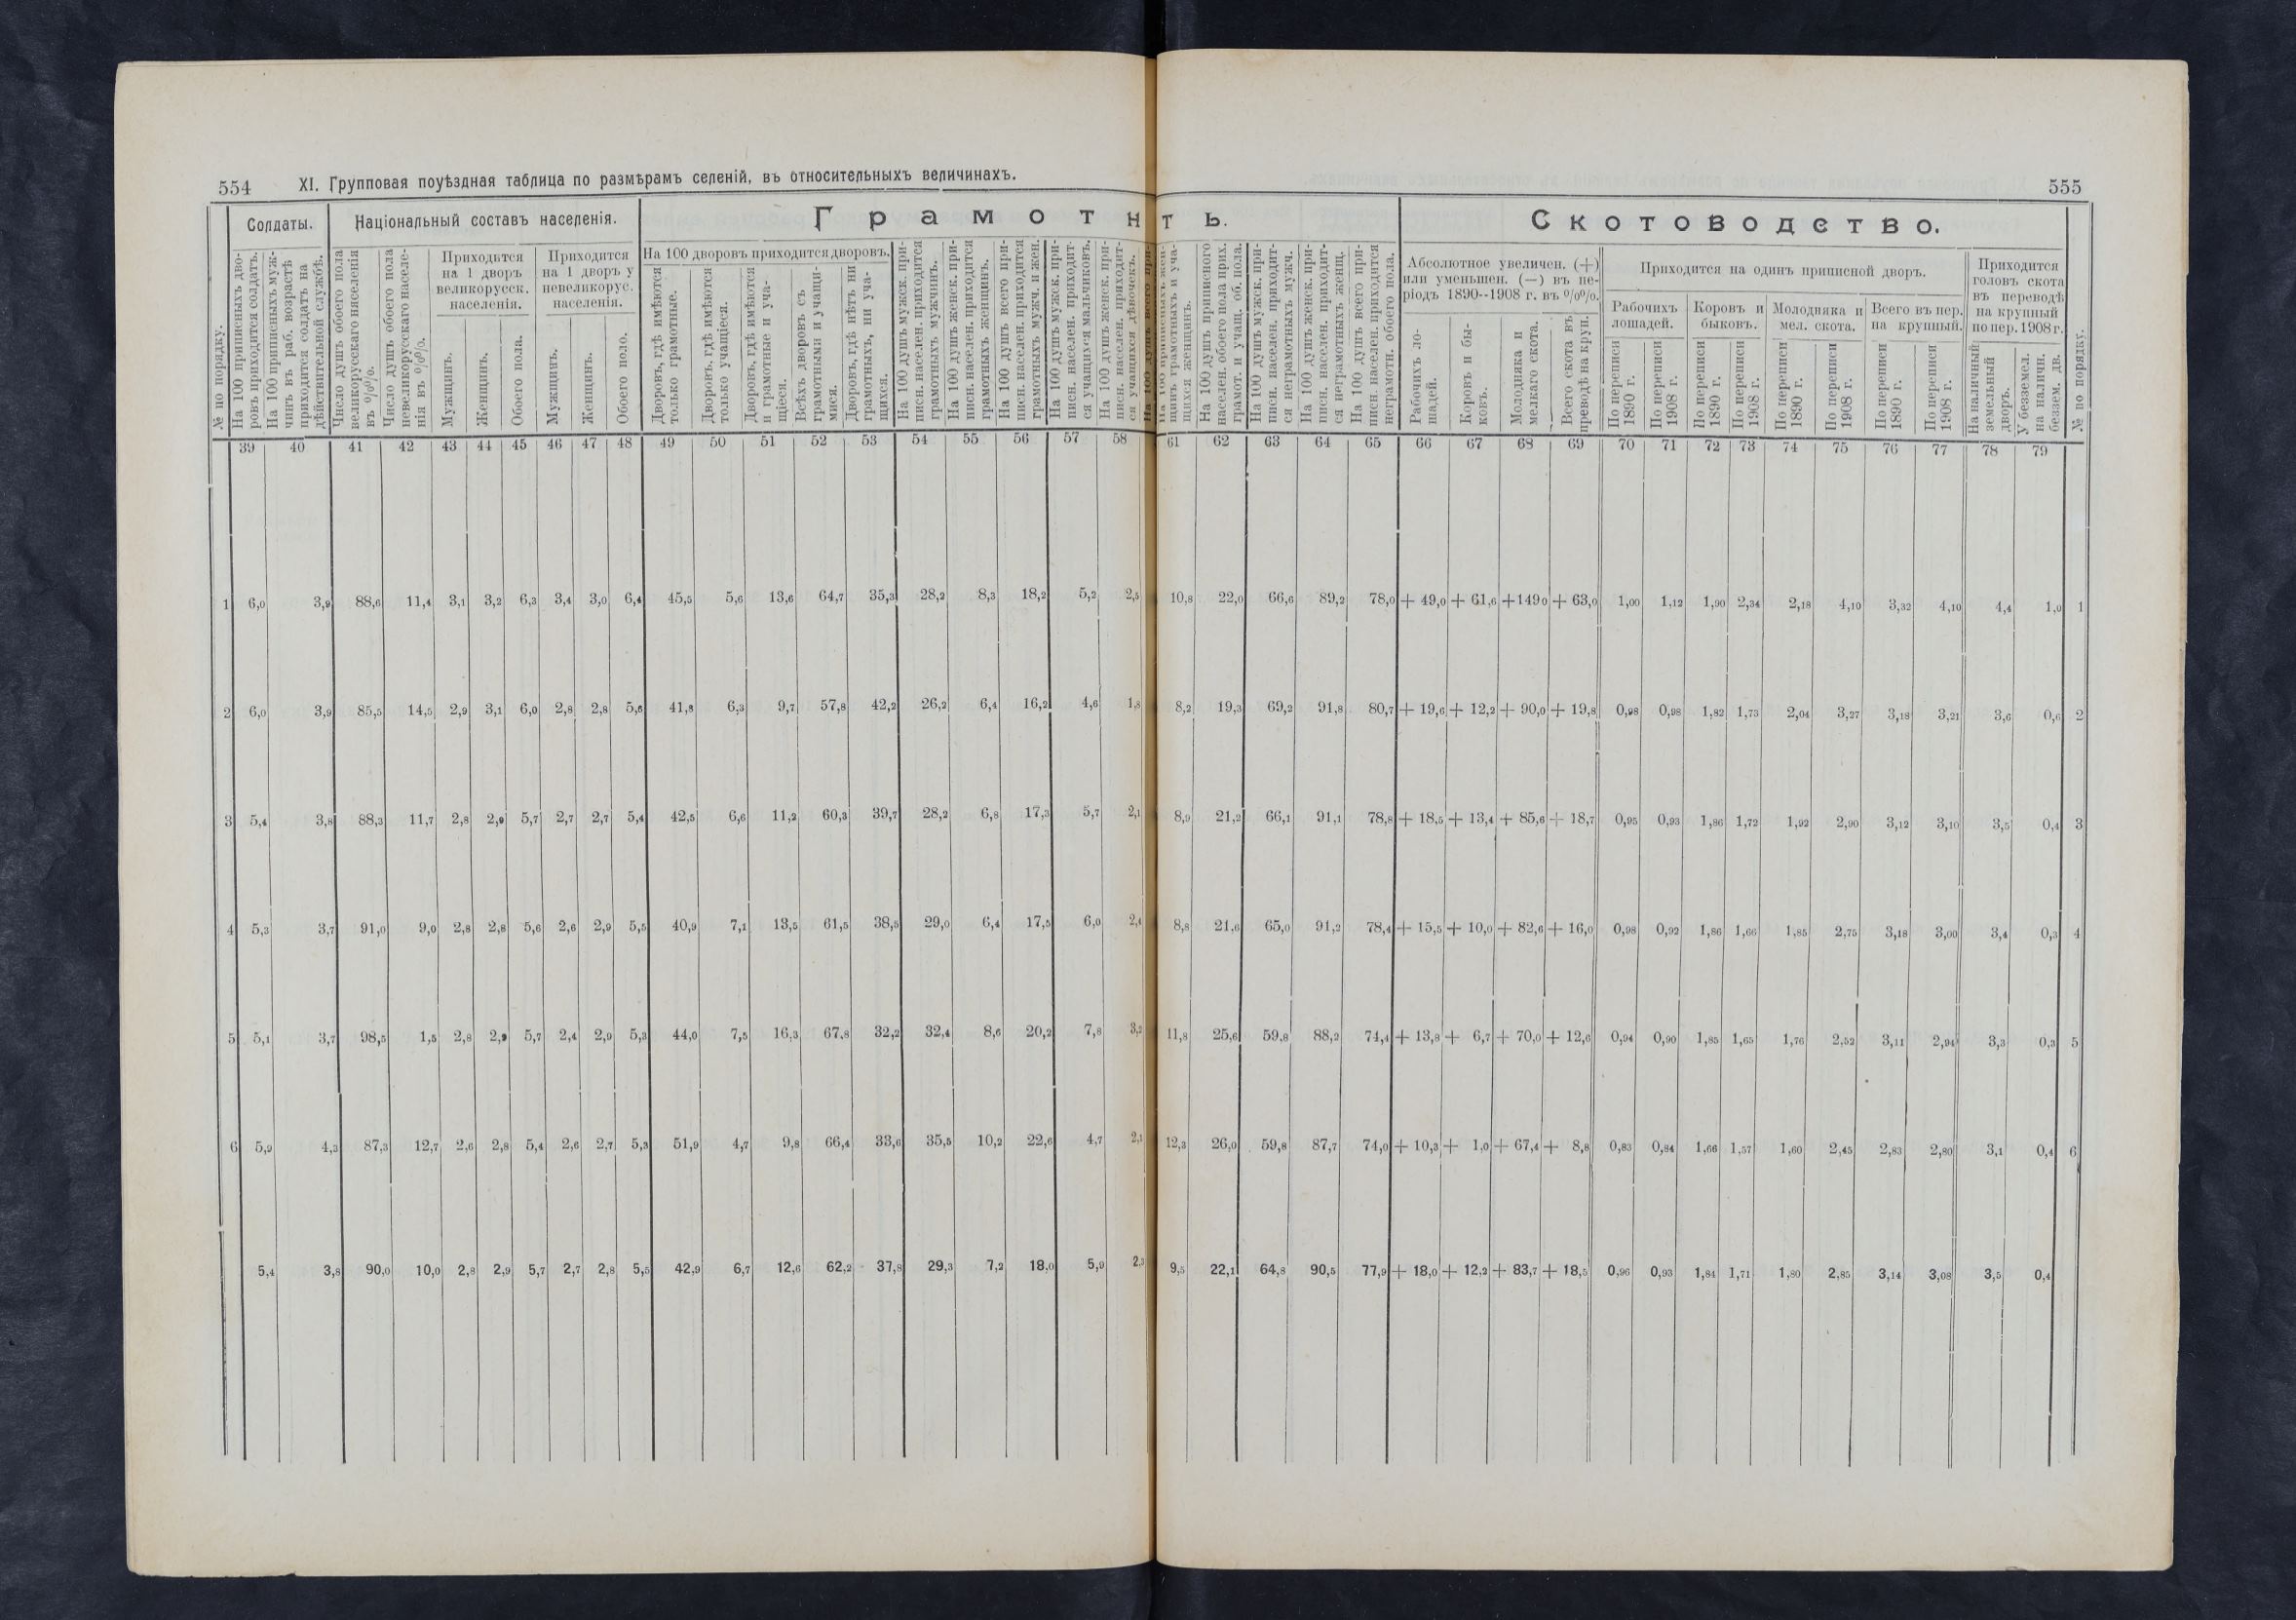 554 XI. Групповая поуѣздная таблица по размѣрамъ селеній, въ относительныхъ величинахъ.
555
№ по порядку.
Солдаты.
На 100 приписныхъ дворовъ приходится солдатъ.
На 100 приписныхъ мужчинъ въ раб. возрастѣ приходится солдатъ на дѣйствительной службѣ.
Національный составъ населенія.
Число душъ обоего пола великорусскаго населенія въ %%.
Число душъ обоего пола невеликорусскаго населенія въ %%.
Приходится на 1 дворъ великорусск. населенія.
Мужчинъ.
Женщинъ.
Обоего пола.
Приходится на 1 дворъ у невеликорус. населенія.
Мужчинъ.
Женщинъ.
Обоего поло.
Грамотн ть.
На 100 дворовъ приходится дворовъ.
Дворовъ, гдѣ имѣются только грамотные.
Дворовъ, гдѣ имѣются только учащіеся.
Дворовъ, гдѣ имѣются и грамотные и учащіеся.
Всѣхъ дворовъ съ грамотными и учащимися.
Дворовъ, гдѣ нѣтъ ни грамотныхъ, ни учащихся.
На 100 душъ мужск. приписн. населен. приходится грамотныхъ мужчинъ.
На 100 душъ женск. приписн. населен. приходится грамотныхъ женщинъ.
На 100 душъ всего приписн. населен. приходится грамотныхъ мужч. и жен.
На 100 душъ мужск. приписн. населен. приходится учащихся мальчиковъ.
На 100 душъ женск. приписн. населен. приходится учащихся дѣвочекъ.
На 100 душъ приписного населен. обоего пола прих. грамот. и учащ. об. пола.
На 100 душъ мужск. приписн. населен. приходится неграмотныхъ мужч.
На 100 душъ женск. приписн. населен. приходится неграмотныхъ женщ.
На 100 душъ всего приписн. населен. приходится неграмотн. обоего пола.
Скотоводство.
Абсолютное увеличен. (+) или уменьшен. (—) въ періодъ 1890--1908 г. въ %%.
Рабочихъ лошадей.
Коровъ и быковъ.
Молодняка и мелкаго скота.
Всего скота въ переводѣ на круп.
Приходится на одинъ приписной дворъ.
Рабочихъ лошадей.
По переписи 1890 г.
По переписи 1908 г.
Коровъ и быковъ.
По переписи 1890 г.
По переписи 1908 г.
Молодняка и мел. скота.
По переписи 1890 г.
По переписи 1908 г.
Всего въ пер. на крупный.
По переписи 1890 г.
По переписи 1908 г.
Приходится головъ скота въ переводѣ на крупный по пер. 1908 г.
На наличный земельный дворъ.
У безземел. на наличн. беззем. дв.
№ по порядку.
39 40 41 42 43 44 45 46 47 48 49 50 51 52 53 54 55 56 57 58 61 62 63 64 65 66 67 68 69 70 71 72 73 74 75 76 77 78 79
1 6,0 3,9 88,6 11,4 3,1 3,2 6,3 3,4 3,0 6,4 45,5 5,6 13,6 64,7 35,3 28,2 8,3 18,2 5,2 2,5 10,8 22,0 66,6 89,2 78,0 + 49,0 + 61,6 +149 0 + 63,0 1,00 1,12 1,90 2,34 2,18 4,10 3,32 4,10 4,4 1,0 1
2 6,0 3,9 85,5 14,5 2,9 3,1 6,0 2,8 2,8 5,6 41,8 6,3 9,7 57,8 42,2 26,2 6,4 16,2 4,6 1,8 8,2 19,3 69,2 91,8 80,7 + 19,6 + 12,2 + 90,0 + 19,8 0,98 0,98 1,82 1,73 2,04 3,27 3,18 3,21 3,6 0,6 2
3 5,4 3,8 88,3 11,7 2,8 2,9 5,7 2,7 2,7 5,4 42,5 6,6 11,2 60,3 39,7 28,2 6,8 17,3 5,7 2,1 8,9 21,2 66,1 91,1 78,8 + 18,5 + 13,4 + 85,6 + 18,7 0,95 0,93 1,86 1,72 1,92 2,90 3,12 3,10 3,5 0,4 3
4 5,3 3,7 91,0 9,0 2,8 2,8 5,6 2,6 2,9 5,5 40,9 7,1 13,5 61,5 38,5 29,0 6,4 17,5 6,0 2,4 8,8 21,6 65,0 91,2 78,4 + 15,5 + 10,0 + 82,6 + 16,0 0,98 0,92 1,86 1,66 1,85 2,75 3,18 3,00 3,4 0,3 4
5 5,1 3,7 98,5 1,5 2,8 2,9 5,7 2,4 2,9 5,3 44,0 7,5 16,3 67,8 32,2 32,4 8,6 20,2 7,8 3,2 11,8 25,6 59,8 88,2 74,4 + 13,8 + 6,7 + 70,0 + 12,6 0,94 0,90 1,85 1,65 1,76 2,52 3,11 2,94 3,3 0,3 5
6 5,9 4,3 87,3 12,7 2,6 2,8 5,4 2,6 2,7 5,3 51,9 4,7 9,8 66,4 33,6 35,5 10,2 22,6 4,7 2,1 12,3 26,0 59,8 87,7 74,0 + 10,3 + 1,0 + 67,4 + 8,8 0,83 0,84 1,66 1,57 1,60 2,45 2,83 2,80 3,1 0,4 6
5,4 3,8 90,0 10,0 2,8 2,9 5,7 2,7 2,8 5,5 42,9 6,7 12,6 62,2 37,8 29,3 7,2 18,0 5,9 2,3 9,5 22,1 64,8 90,5 77,9 + 18,0 + 12,2 + 83,7 + 18,5 0,96 0,93 1,84 1,71 1,80 2,85 3,14 3,08 3,5 0,4